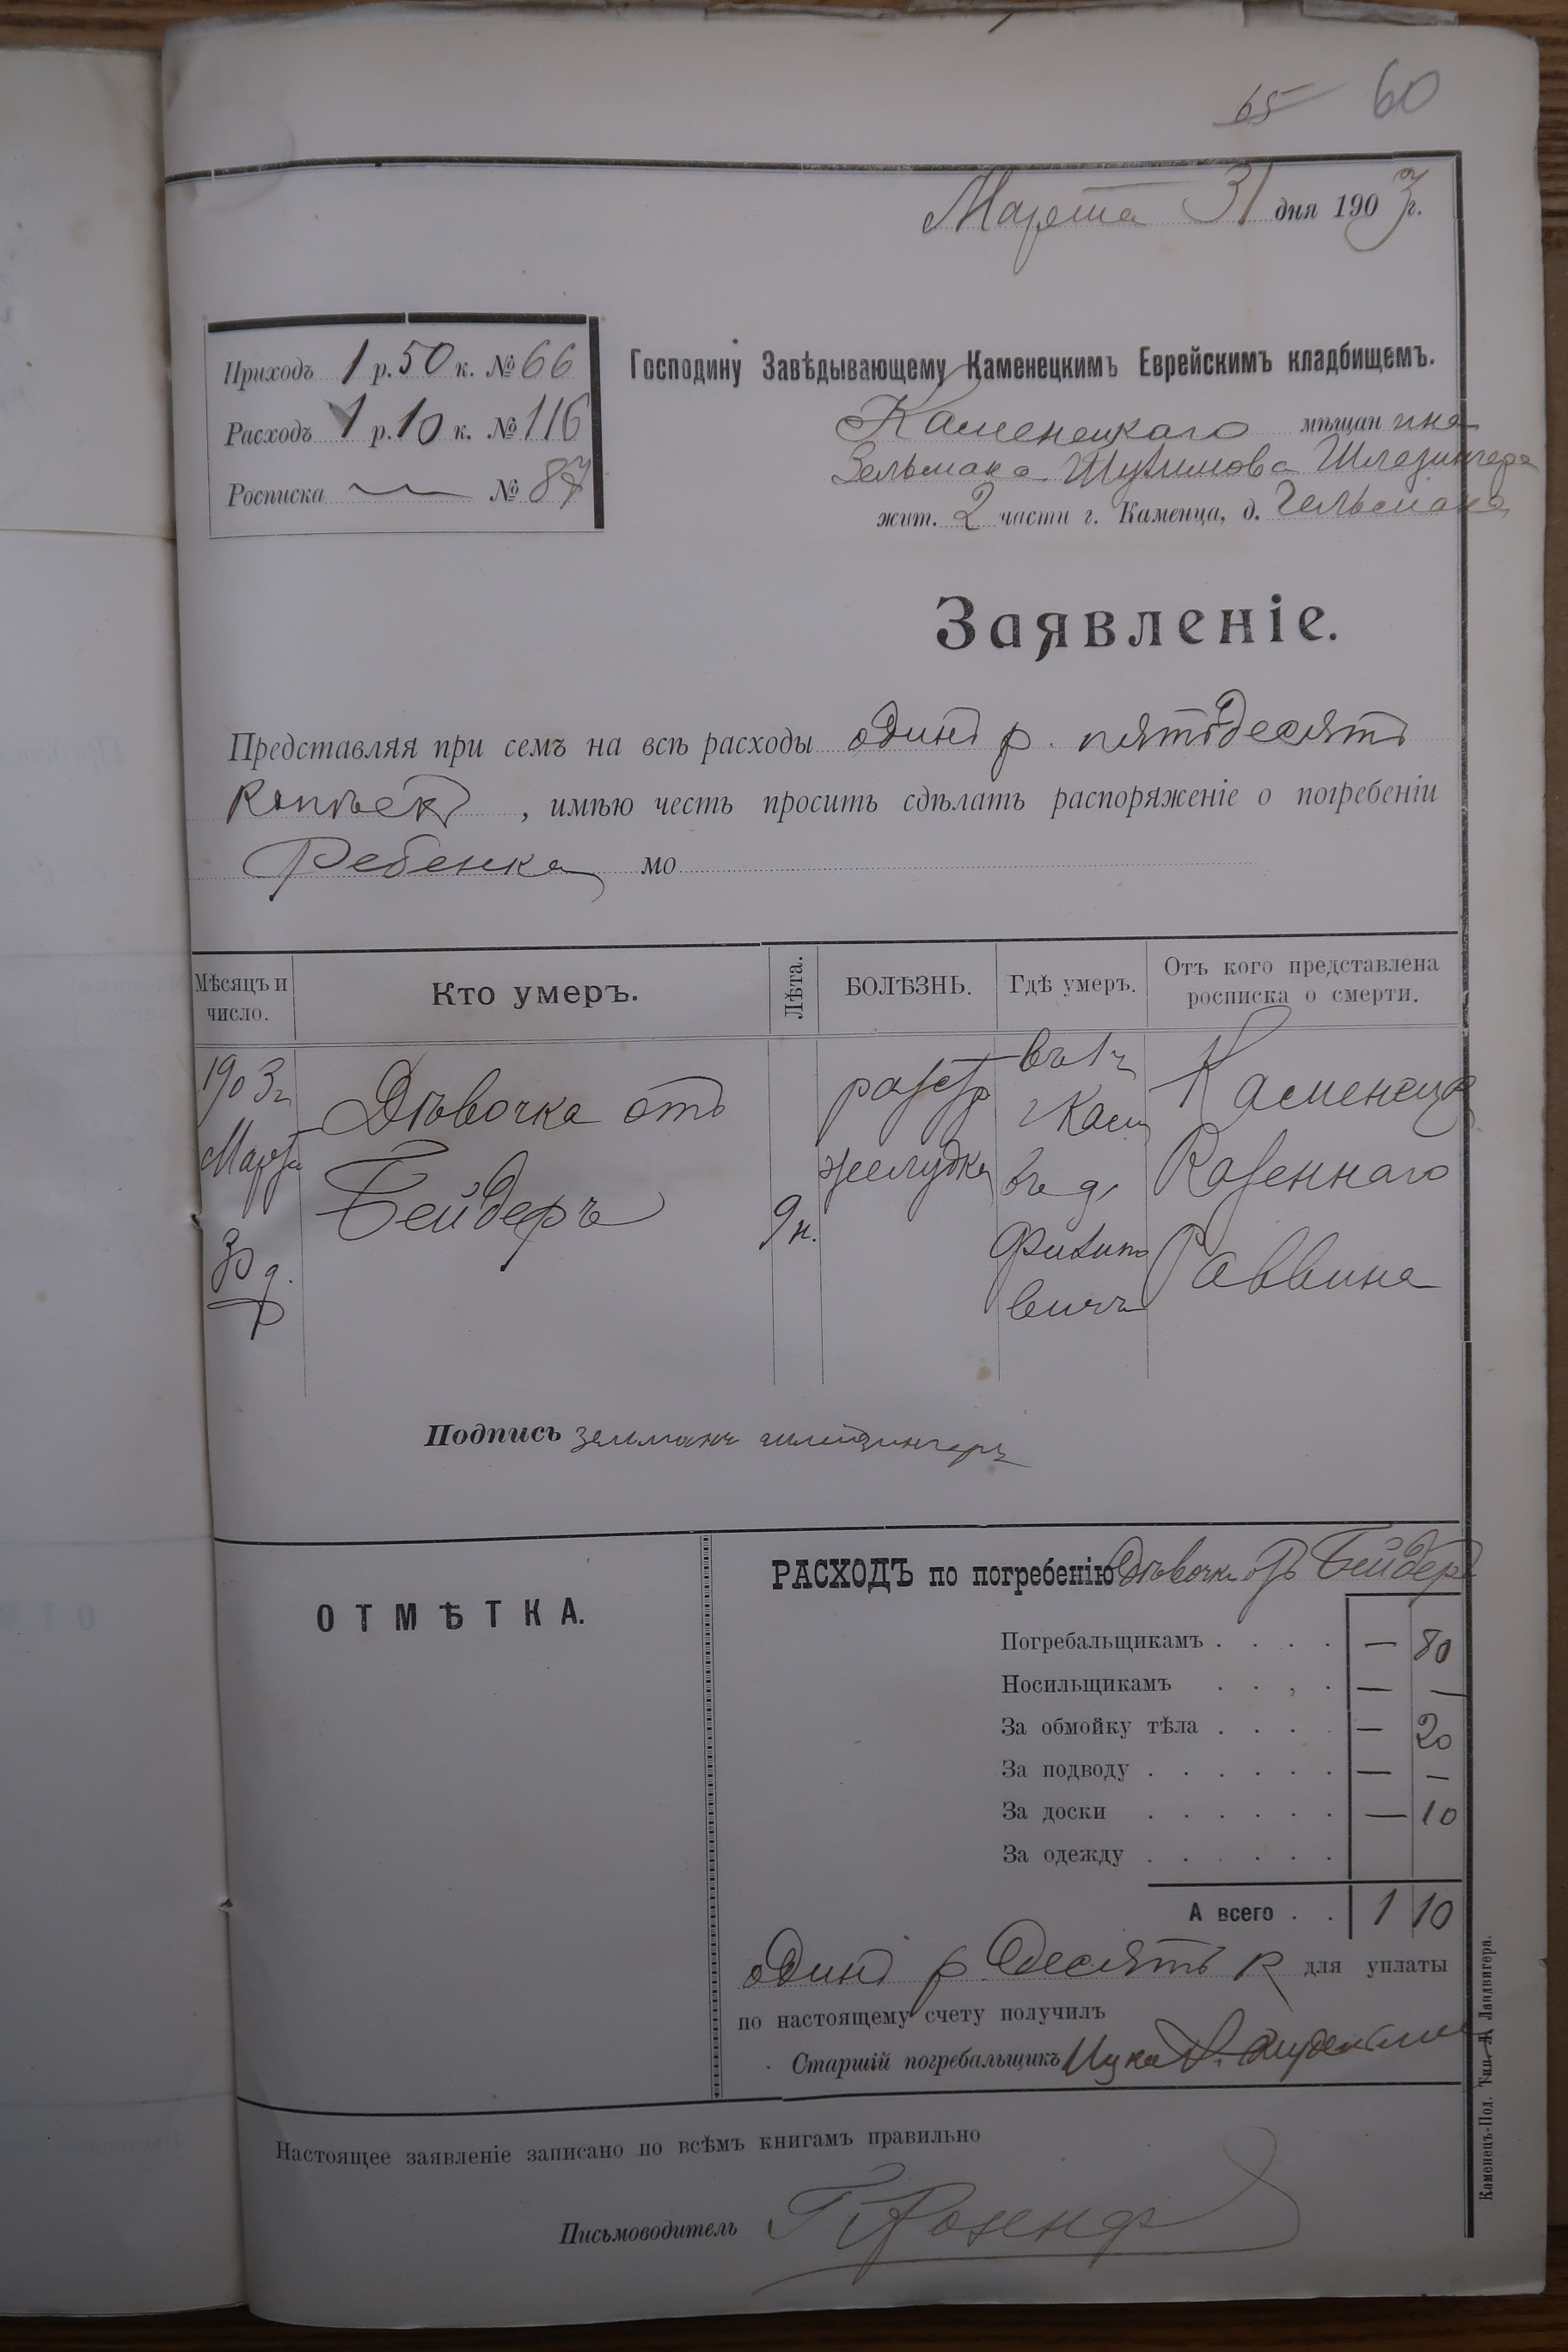 65 60
Марта 31 дня 1903 г.
Приходъ 1 р. 50 к. № 66
Расходъ 1 р. 10 к. № 116
Росписка № 87
Господину Завѣдывающему Каменецкимъ Еврейскимъ кладбищемъ.
Каменецкаго мѣщанина
Зельмана Шулимова Шлезингера
жит. 2 части г. Каменца, д. Гельмана
Заявленіе.
Представляя при семъ на всѣ расходы одинъ р. пятьдесятъ
копѣекъ, имѣю честь просить сдѣлать распоряженіе о погребеніи
Ребенка мо
Мѣсяцъ и число. Кто умеръ. Лѣта. БОЛѢЗНЬ. Гдѣ умеръ. Отъ кого представлена росписка о смерти.
1903 г. Марта 30 д. Дѣвочка отъ Бейдеръ 9 н. разстр желудка въ 1 ч г Кам въ д. Каменецк Казеннаго Раввина
Подпись Зельманъ Шлейзингеръ
ОТМѢТКА.
РАСХОДЪ по погребенію Дѣвочки отъ Бейдеръ
Погребальщикамъ . . . . — 80
Носильщикамъ . . , . — —
За обмойку тѣла . . . . — 20
За подводу . . . . . . — —
За доски . . . . . . — 10
За одежду . . . . . .
А всего . . 1 10
одинъ р. десять к для уплаты
по настоящему счету получилъ
Старшій погребальщикъ
Настоящее заявленіе записано по всѣмъ книгамъ правильно
Письмоводитель
Каменецъ-Под. Тип. Ж. Ландвигера.